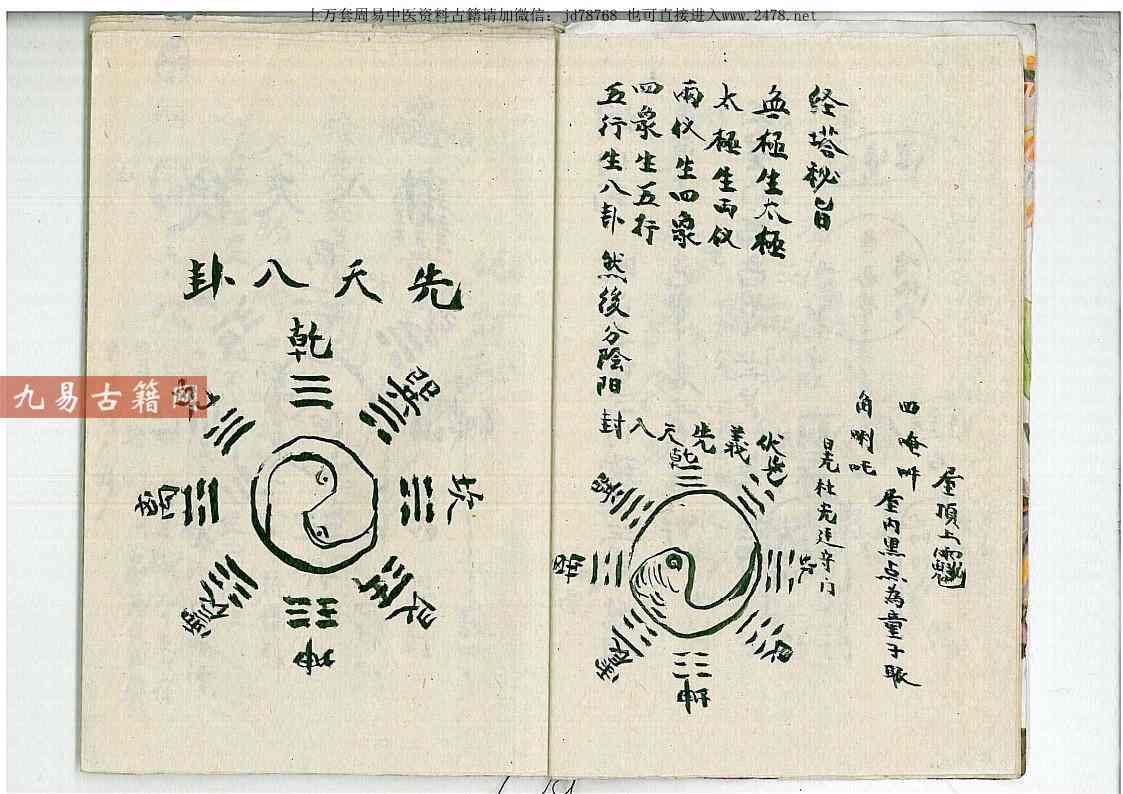 上万套周易中医资料古籍请加微信：jd78768 也可直接进入www.2478.net
経塔秘旨
無極生太極
太極生両仪
両仪生四象
四象生五行
五行生八卦 然後分陰阳
屋頂上
四唵吽
屋内黒点為童子眼
角唎吒
伏羲先天八卦
乾
巽
坤
震
艮
先天八卦
乾
巽
坎
艮
坤
震
离
兑
九易古籍网